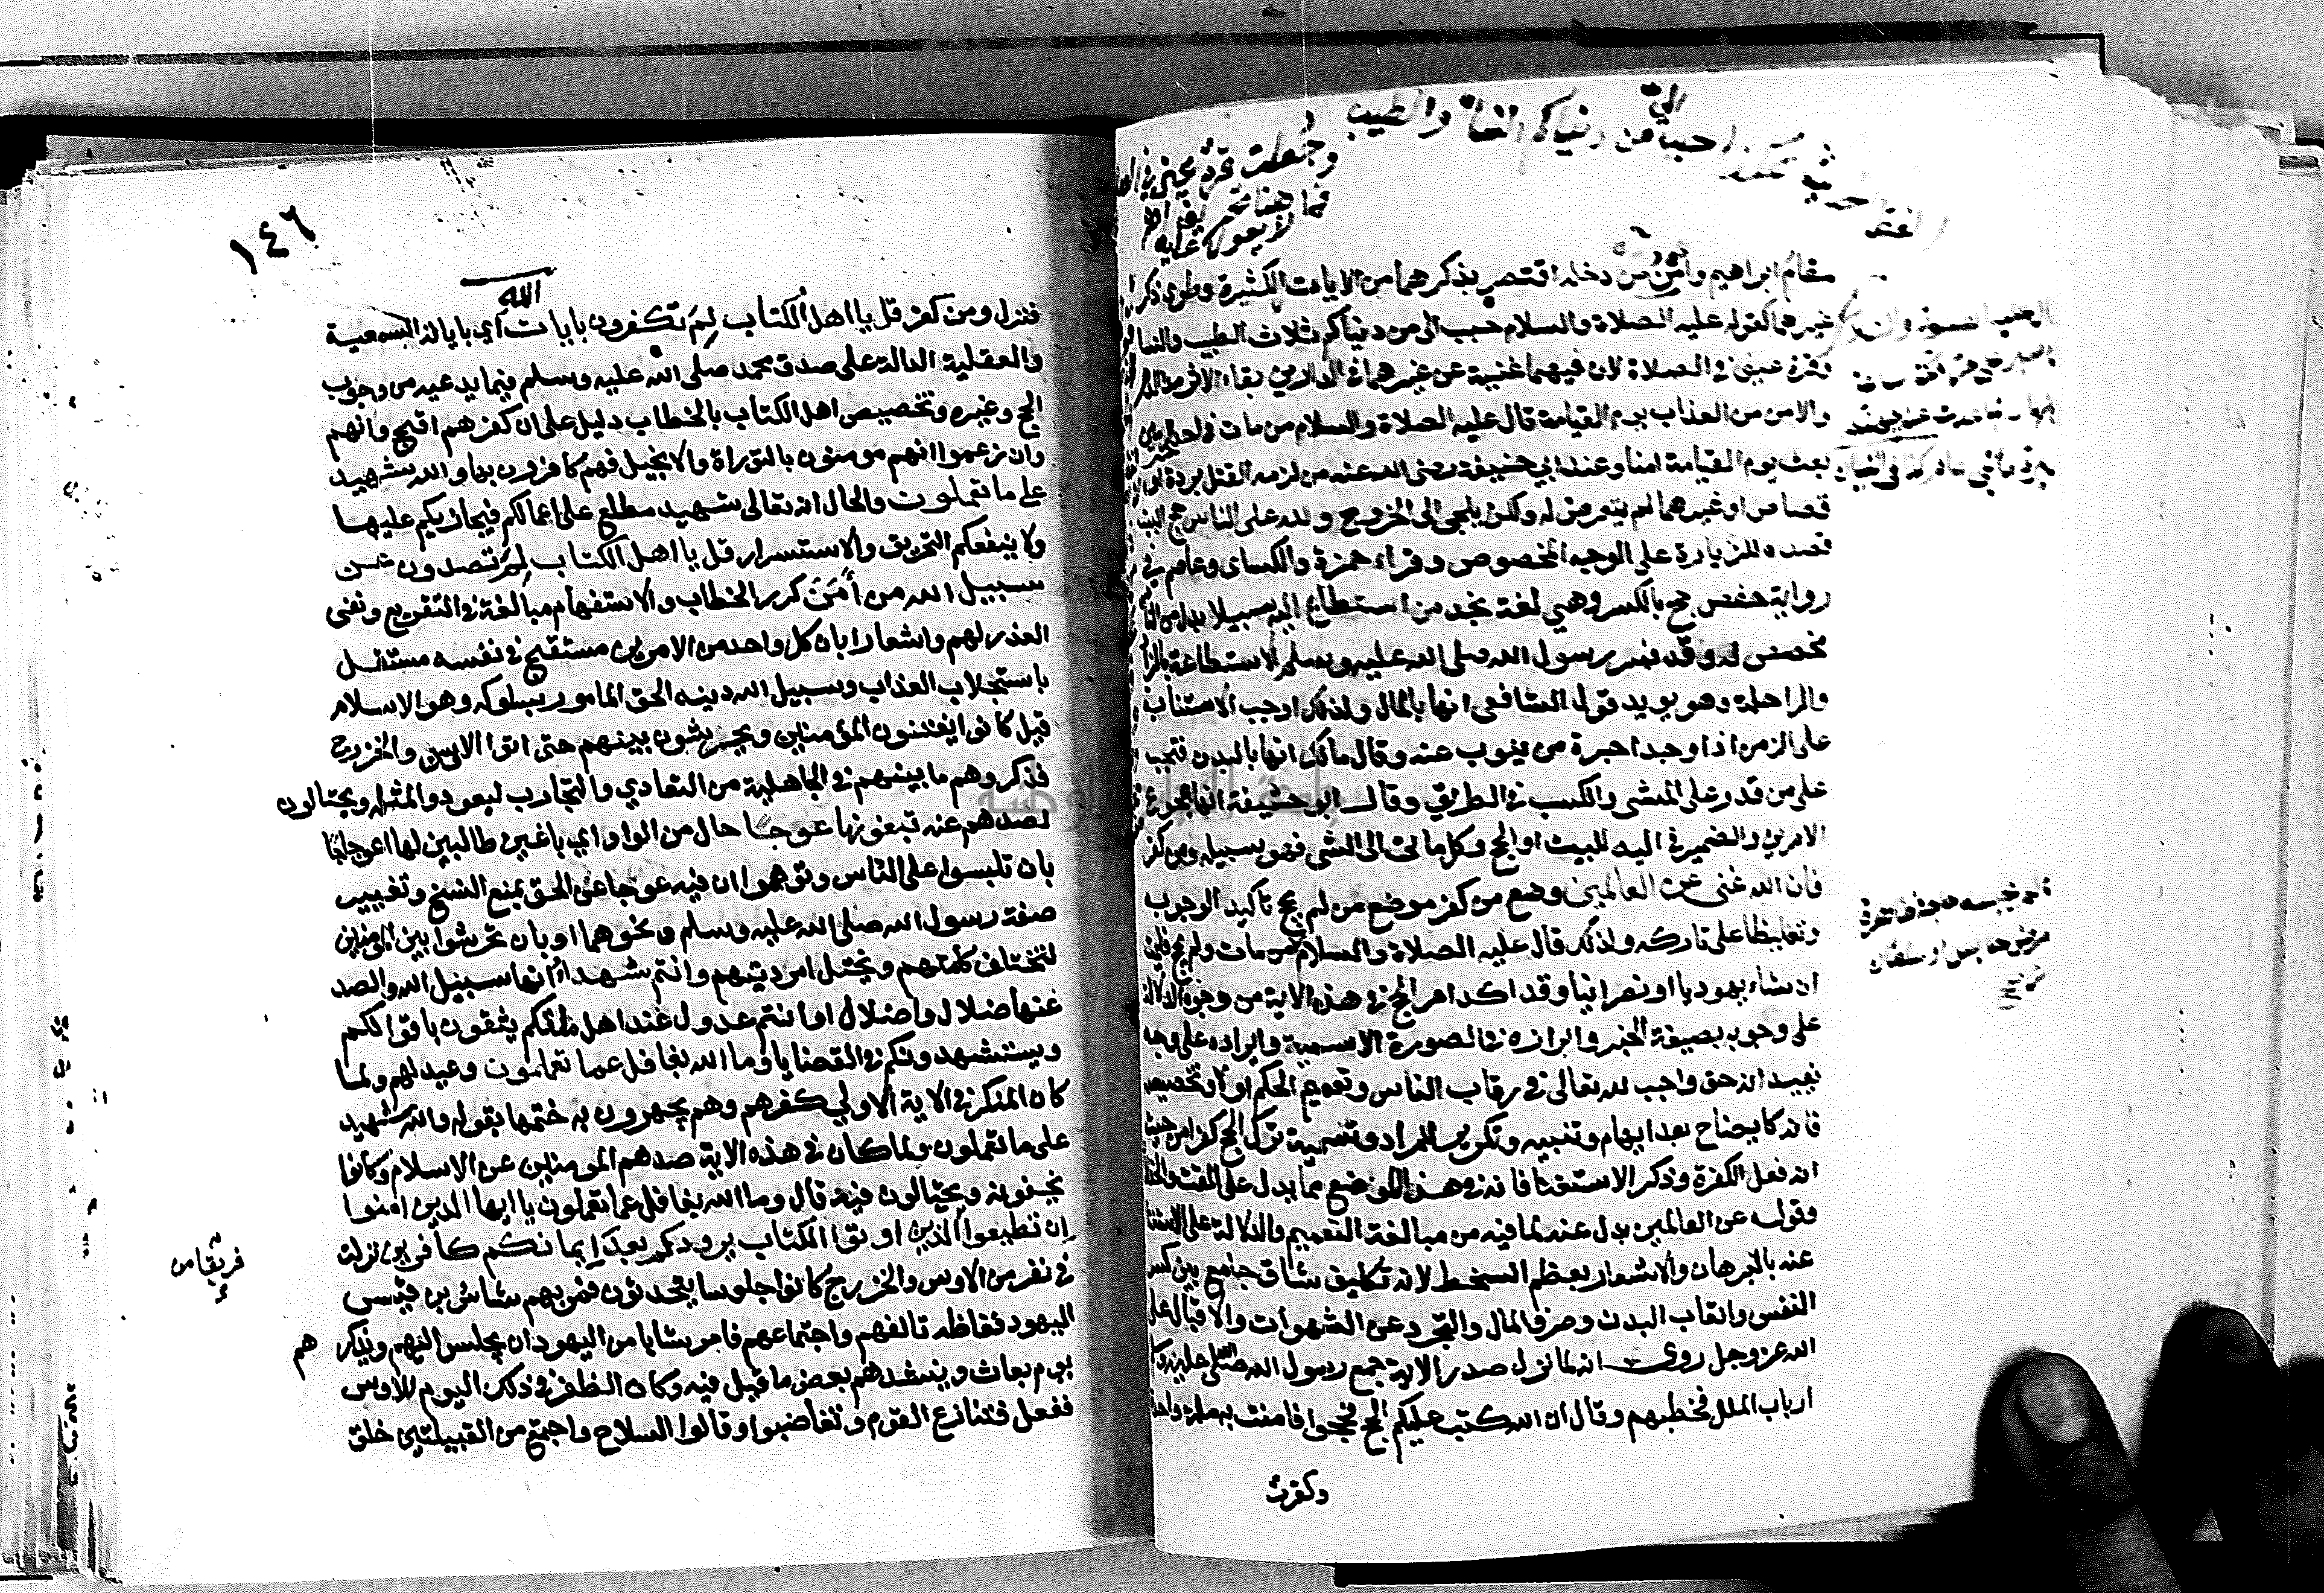 احب من دنياكم النساء والطيب
وجعلت قرة عيني في
مقام ابراهيم وامن من دخله اقتصر بذكرهما من الايات الكثيرة وطوى ذكر
غيرهما كقوله عليه الصلاة والسلام حبب الى من دنياكم ثلاث الطيب والنسا
وقرة عينى في الصلاة لان فيهما غنية عن غيرهما في الدارين بقاء الاثر من الدهر
والامن من العذاب يوم القيامة قال عليه الصلاة والسلام من مات في احد الحرمين
بعث يوم القيامة امنا وعند ابي حنيفة رضى الله عنه من لزمه القتل بردة او
قصاص او غيرهما لم يتعرض له ولكن يلجى الى الخروج ولله على الناس حج البيت
قصده للزيارة على الوجه المخصوص وقراء حمزة والكساى وعاصم في
رواية حفص حج بالكسر وهي لغة نجد من استطاع اليه سبيلا بدل من الناس
مخصص له وقد فسر رسول الله صلى الله عليه وسلم الاستطاعة بالزاد
والراحلة وهو يويد قول الشافعي انها بالمال ولذلك اوجب الاستناب
على الزمن اذا وجد اجرة من ينوب عنه وقال مالك انها بالبدن فتجب
على من قدر على المشى والكسب في الطريق وقال ابو حنيفة انها بمجموع
الامرين والضمير في اليه للبيت او الحج وكل ما تى الى الشى فهو سبيله ومن كفر
فان الله غنى عن العالمين وضع من كفر موضع من لم يحج تاكيد الوجوب
وتغليظا على تاركه ولذلك قال عليه الصلاة والسلام من مات ولم يحج فليمت
ان شاء يهوديا او نصرانيا وقد اكد امر الحج في هذه الاية من وجوه الدلالة
على وجوبه بصيغة الخبر وابرازه في الصورة الاسمية وايراده على وجه
يفيد انه حق واجب لله تعالى في رقاب الناس وتعميم الحكم اولا وتخصيصه
فانه كايضاح بعد ابهام وتنبيه وتكرير للمراد وتسمية ترك الحج كفرا من حيث
انه فعل الكفرة وذكر الاستغنا فانه في هذا الموضع مما يدل على المقت والخذ
وقوله عن العالمين يدل عنه لما فيه من مبالغة التعميم والدلالة على الاستغنا
عنه بالبرهان والاشعار بعظم السخط لانه تكليف شاق جامع بين كسر
النفس واتعاب البدن وصرف المال والتجرد عن الشهوات والاقبال على
الله عز وجل روى انه لما نزل صدر الاية جمع رسول الله صلى الله عليه وسلم
ارباب الملل فخطبهم وقال ان الله كتب عليكم الحج فحجوا فامنت به ملة واحدة
وكفرت
١٤٦
الله
فنزل ومن كفر قل يا اهل الكتاب لم تكفرون بايات اي باياته السمعية
والعقلية الدالة على صدق محمد صلى الله عليه وسلم فيما يدعيه من وجوب
الحج وغيره وتخصيص اهل الكتاب بالخطاب دليل على ان كفرهم اقبح وانهم
وان زعموا انهم مومنون بالتوراة والانجيل فهم كافرون بها والله شهيد
على ما تعملون والحال انه تعالى شهيد مطلع على اعمالكم فيجازيكم عليها
ولا ينفعكم التحريف والاستسرار قل يا اهل الكتاب لم تصدون عن
سبيل الله من أمن كرر الخطاب والاستفهام مبالغة في التقريع ونفى
العذر لهم واشعارا بان كل واحد من الامرين مستقبح في نفسه مستقل
باستجلاب العذاب وسبيل الله دينه الحق المامور بسلوكه وهو الاسلام
قيل كانوا يفتنون المؤمنين ويحرشون بينهم حتى اتوا الاوس والخزرج
فذكروهم ما بينهم في الجاهلية من التعادي والتحارب ليعودوا لمثله ويحتالون
لصدهم عنه تبغونها عوجا حال من الواو اي باغين طالبين لها اعوجاجا
بان تلبسوا على الناس وتوهموا ان فيه عوجا عن الحق بمنع النسخ وتغيير
صفة رسول الله صلى الله عليه وسلم ونحوهما او بان تحرشوا بين المومنين
لتختلف كلمتهم ويختل امر دينهم وانتم شهداء انها سبيل الله والصد
عنها ضلال واضلال او انتم عدول عند اهل ملتكم يثقون باقوالكم
ويستشهدونكم في القضايا وما الله بغافل عما تعملون وعيد لهم ولما
كان المنكر في الاية الاولى كفرهم وهم يجهرون به ختمها بقوله والله شهيد
على ما تعملون ولما كان في هذه الاية صدهم المومنين عن الاسلام وكانوا
يخفونه ويحتالون فيه قال وما الله بغافل عما تعملون يا ايها الذين امنوا
ان تطيعوا الذين اوتوا الكتاب يردوكم بعد ايمانكم كافرين نزلت
فريقا من
في نفر من الاوس والخزرج كانوا جلوسا يتحدثون فمر بهم شاش بن قيس
اليهود فغاظه تالفهم واجتماعهم فامر شابا من اليهود ان يجلس اليهم ويذكر هم
يوم بعاث وينشدهم بعض ما قيل فيه وكان الظفر في ذلك اليوم للاوس
ففعل فتنازع القوم وتغاضبوا وقالوا السلاح واجتمع من القبيلتين خلق